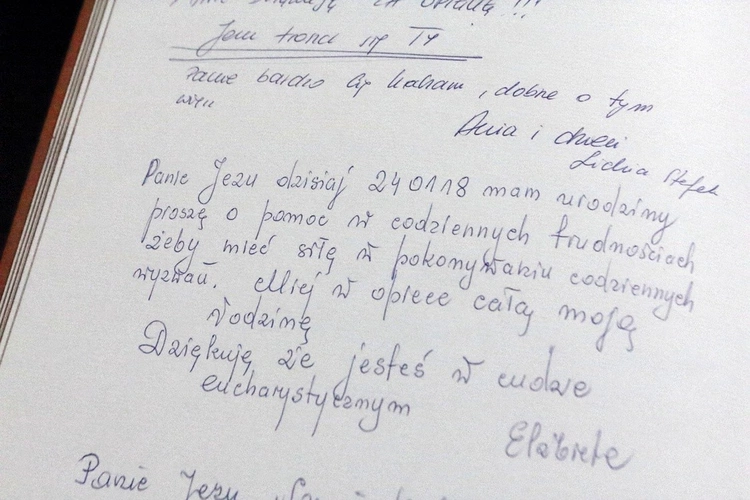 ZA
Panie bardzo Cię kocham, dobrze o tym
wiesz
Ania i dzieci
Lidia Stefek
Panie Jezu dzisiaj 240118 mam urodziny
proszę o pomoc w codziennych trudnościach
żeby mieć siłę w pokonywaniu codziennych
wyzwań. Miej w opiece całą moją
rodzinę
Dziękuję że jesteś w cudzie
eucharystycznym
Elżbieta
Panie Jezu